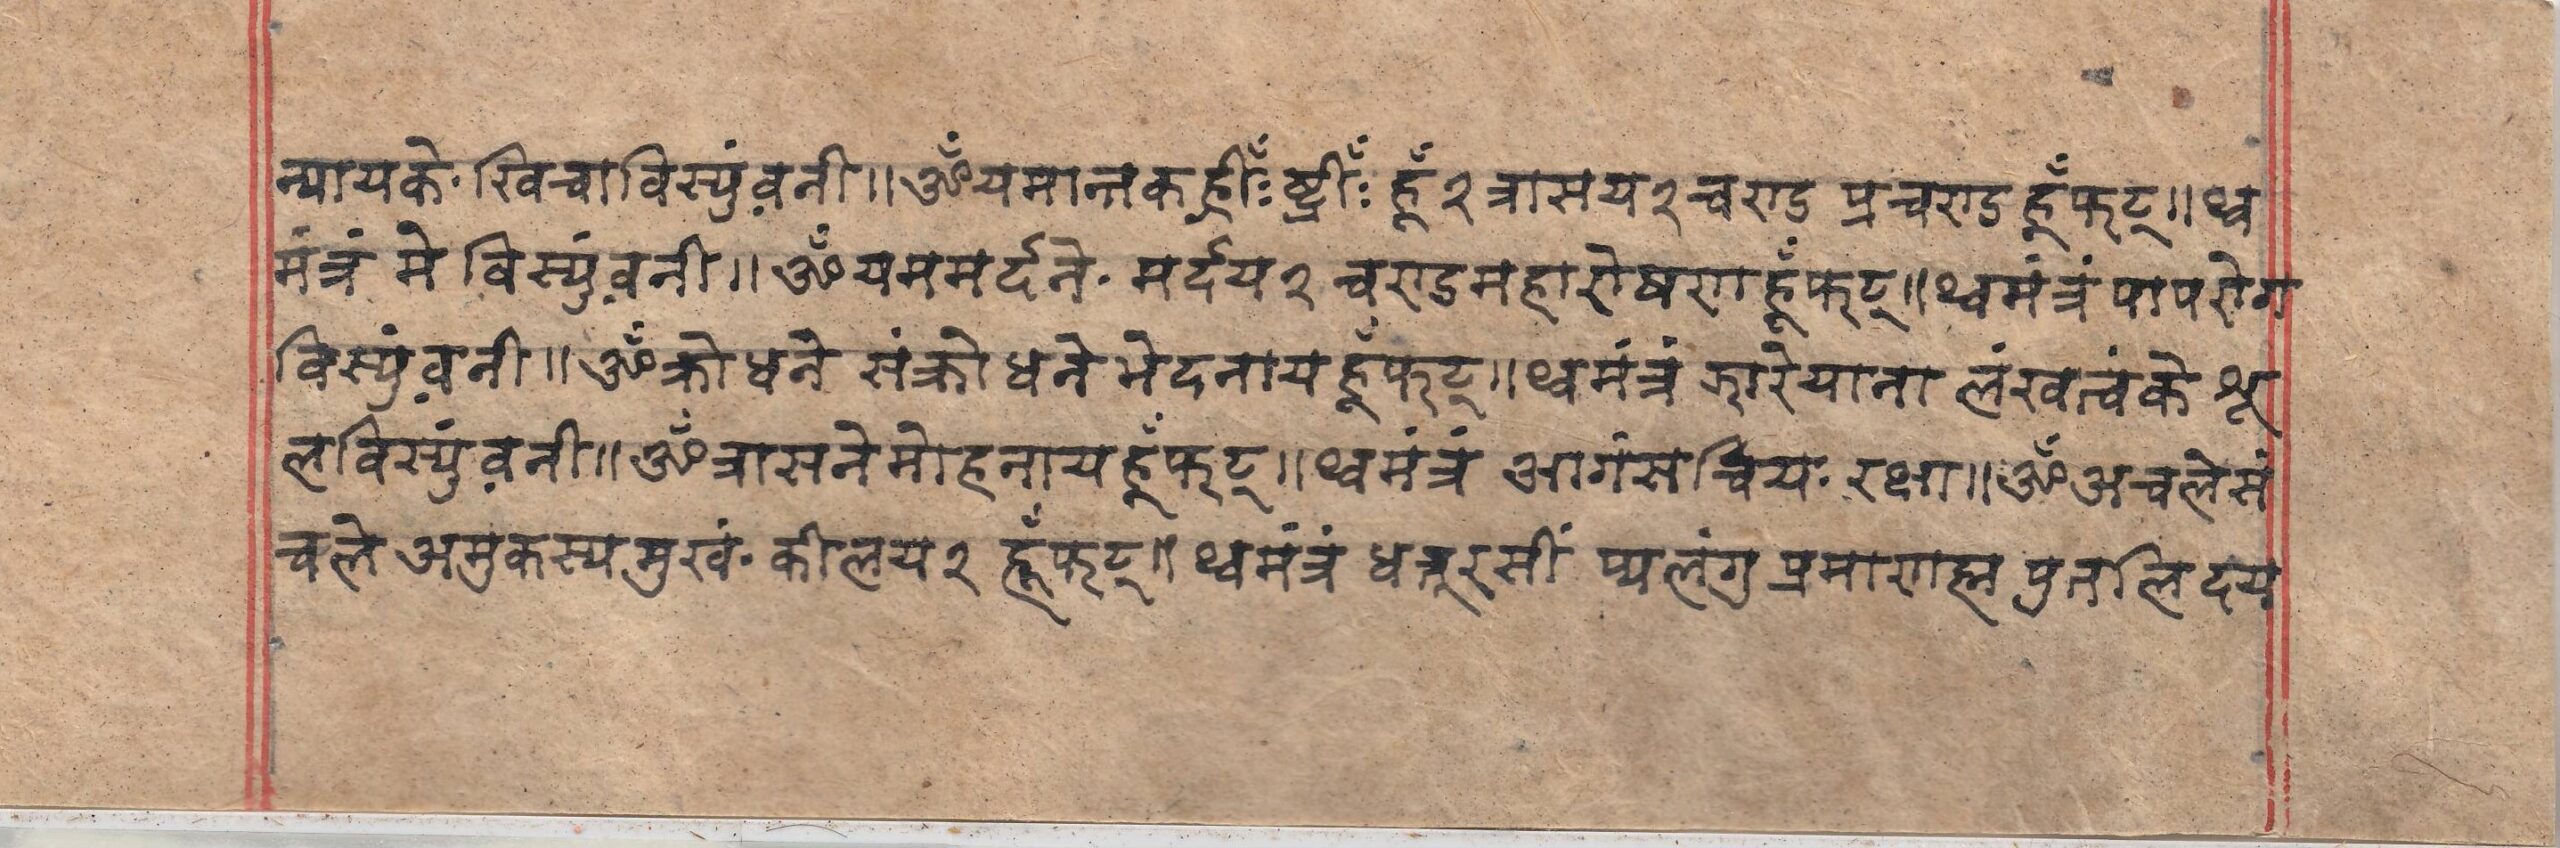 न्यायके· खिचाविस्युं व़नी॥ॐ यमान्तक ह्रीँः ष्ट्रीँः हूँ २ त्रासय २ चण्ड प्रचण्ड हूँ फट्॥ थ्व
मंत्रं मे विस्युं व़नी॥ॐ यममर्दने· मर्दय २ चण्डमहारोषण हूँ फट्॥ थ्वमंत्रं पापरोग
विस्युं व़नी॥ॐ क्रोधने संक्रोधने भेदनाय हूँ फट्॥ थ्वमंत्रं झारेयाना लंखत्वंके शू
लविस्युं व़नी॥ॐ त्रासने मोहनाय हूँ फट्॥ थ्वमंत्रं आगंस च्विय· रक्षा॥ॐ अचले सं
चले अमुकस्य मुखं· कीलय २ हूँ फट्॥ थ्वमंत्रं धङ्गुरसीं प्यलंगु प्रमाणह्म पुतलि दय